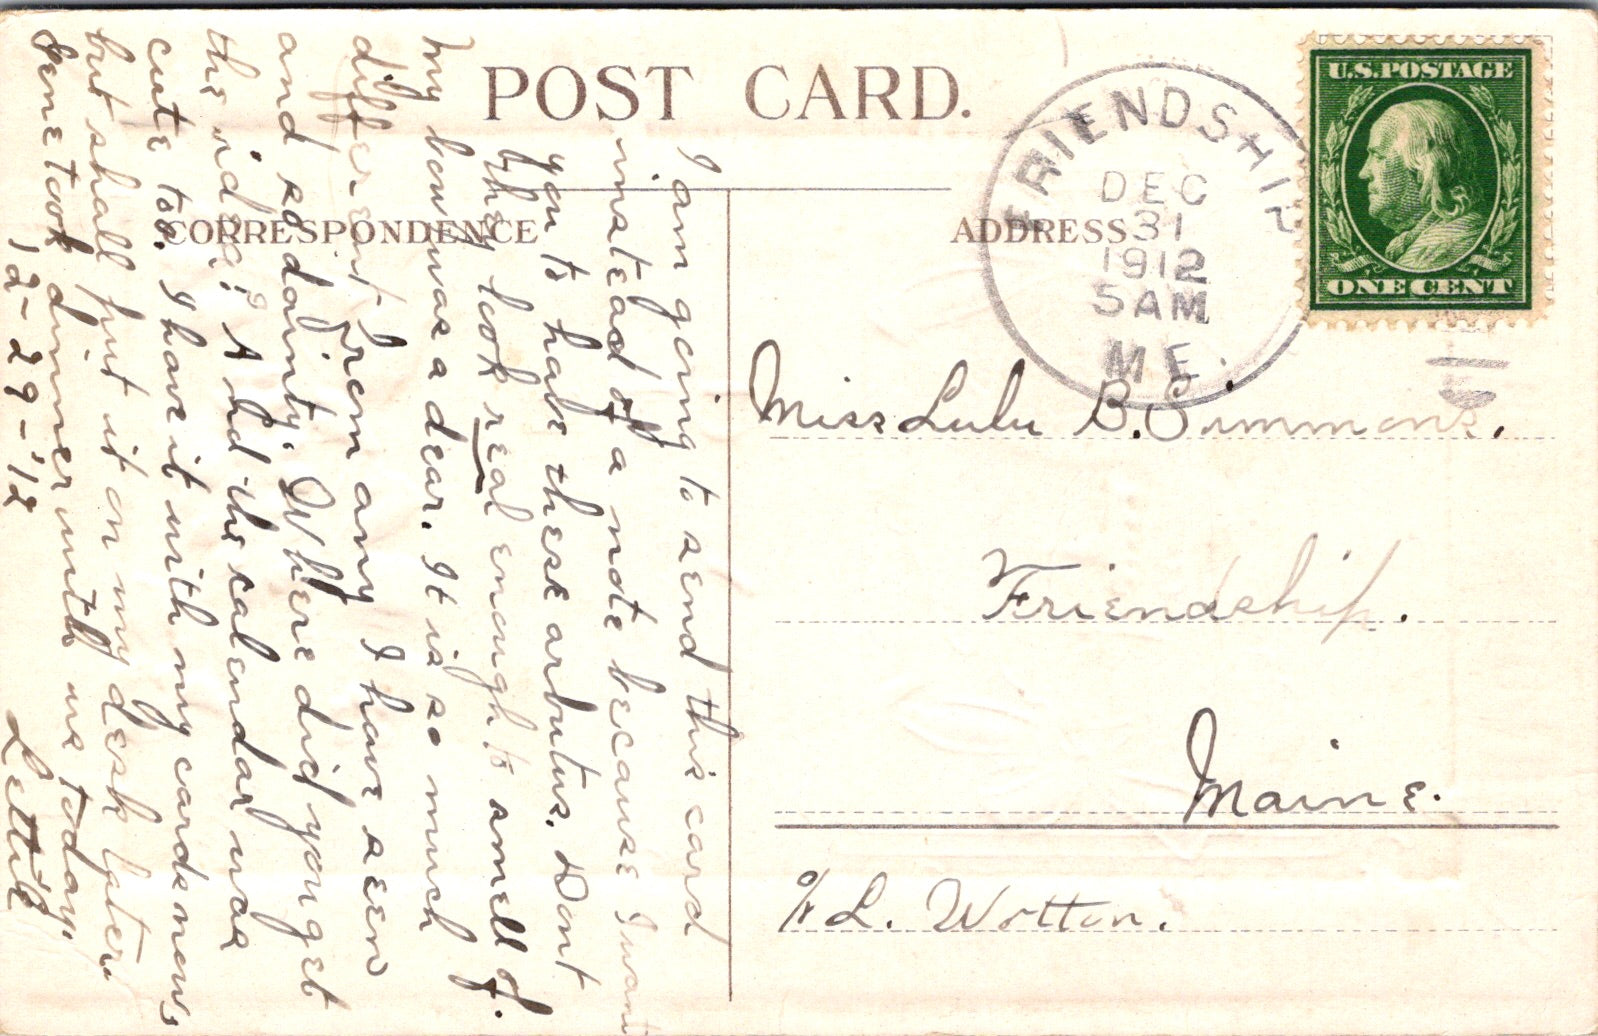 POST CARD.
CORRESPONDENCE
ADDRESS
FRIENDSHIP
DEC
31
1912
5AM
ME.
U.S.POSTAGE
ONE CENT
I am going to send this card
instead of a note because I want
you to have these arbutus. Dont
they look real enough to smell of.
My bow was a dear. It is so much
different from any I have seen
and so dainty. Where did you get
the idea? And the calendar was
cute too. I have it with my cards now,
but shall put it on my desk later.
Gene took dinner with us today.
12-29-'12
Lettie
Miss Lulu B. Simmons,
Friendship.
Maine.
c/o L. Wotton.